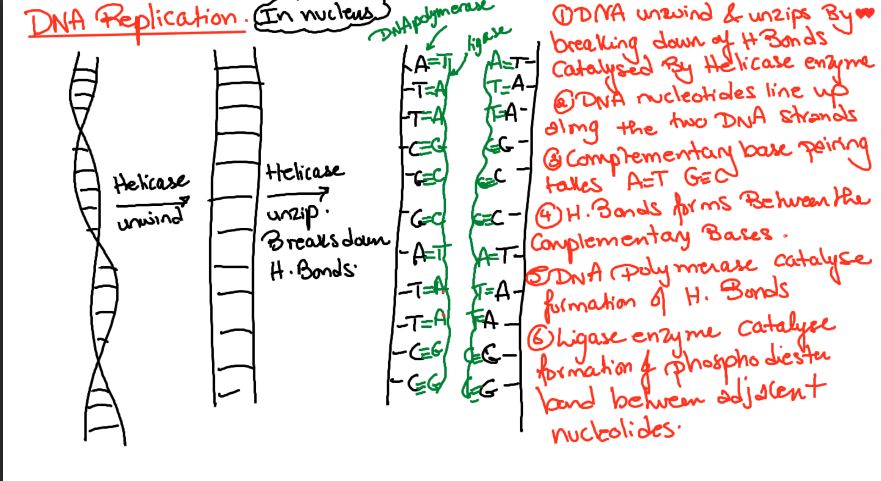 DNA Replication. In nucleus
DNA polymerase
ligase
Helicase
unwind
Helicase
unzip.
Breaks down
H. Bonds.
A=T
T=A
T=A
C≡G
G≡C
G≡C
A=T
T=A
T=A
C≡G
C≡G
A=T
T=A
T=A
C≡G
G≡C
G≡C
A=T
T=A
T=A
C≡G
C≡G
① DNA unwind & unzips By
breaking down of H Bonds
Catalysed By Helicase enzyme
② DNA nucleotides line up
along the two DNA strands
③ Complementary base pairing
takes A=T G≡C
④ H. Bonds forms Between the
Complementary Bases.
⑤ DNA Polymerase catalyse
formation of H. Bonds
⑥ Ligase enzyme catalyse
formation of phosphodiester
bond between adjacent
nucleotides.